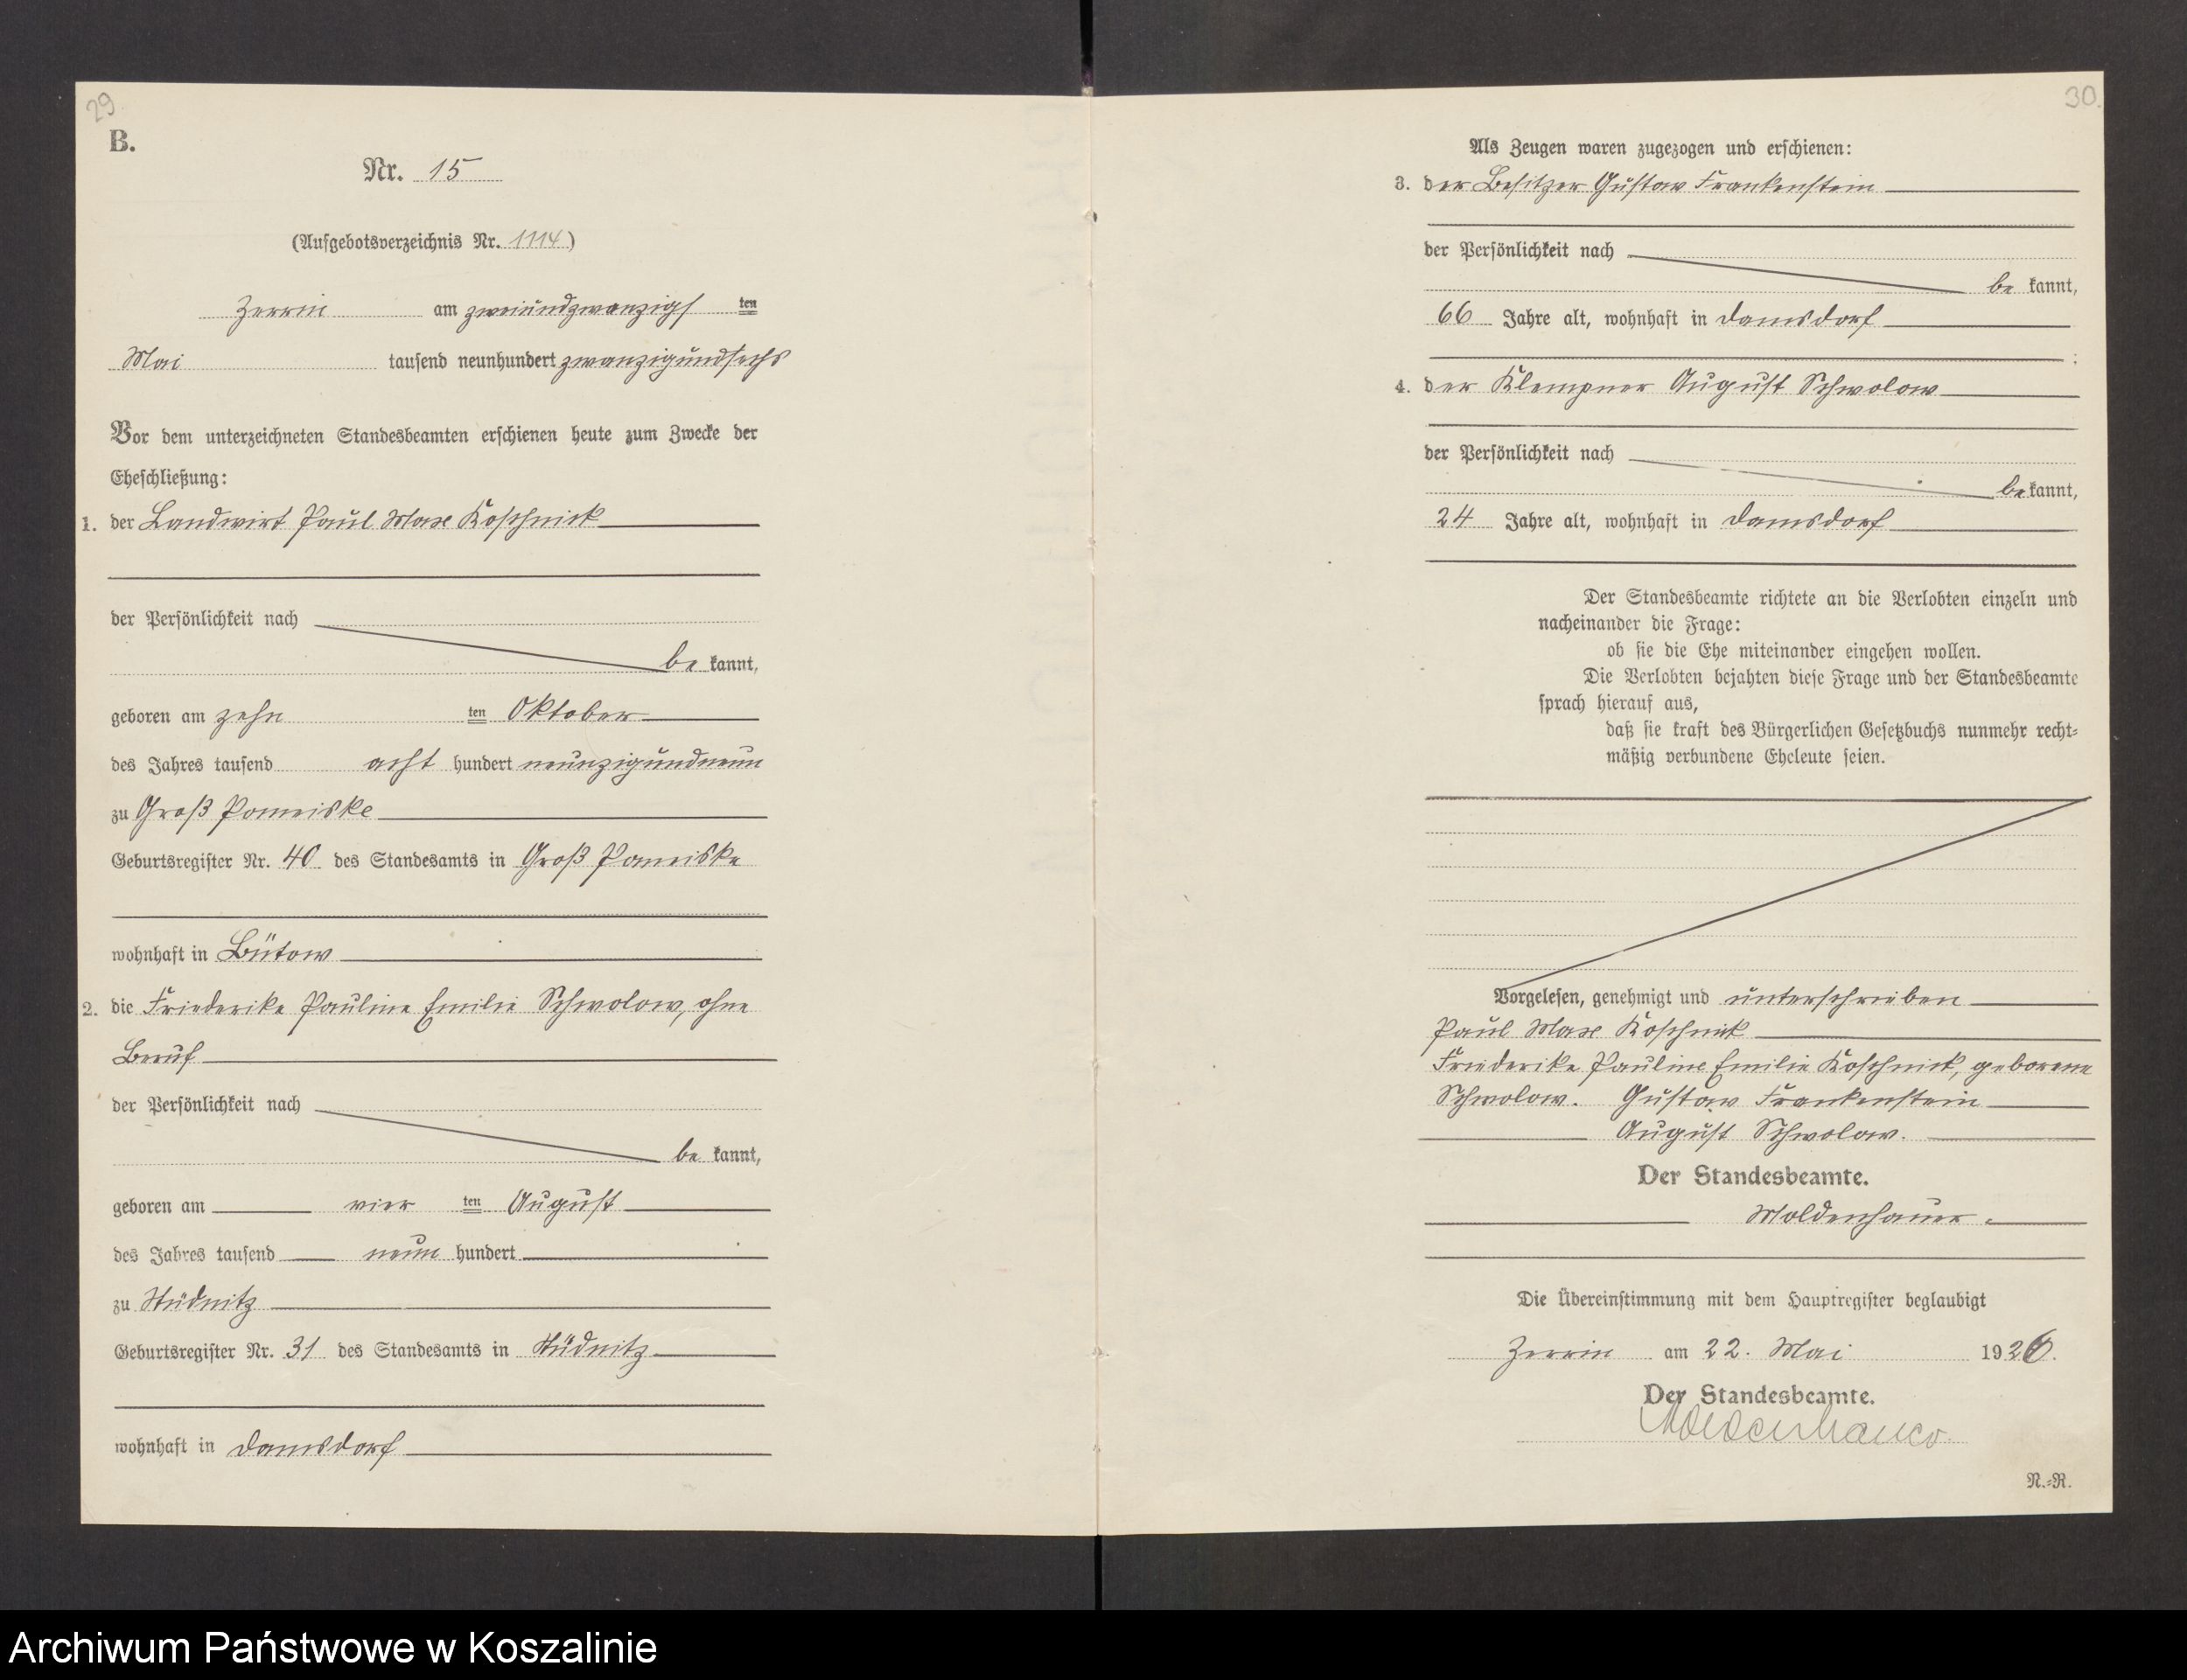 29.
B.
Nr. 15
(Aufgebotsverzeichnis Nr. 1114)
Zerrin am zweiundzwanzigs ten
Mai tausend neunhundert zwanzigundsechs
Vor dem unterzeichneten Standesbeamten erschienen heute zum Zwecke der
Eheschließung:
1. der Landwirt Paul Max Koschnick
der Persönlichkeit nach
be kannt,
geboren am zehn ten Oktober
des Jahres tausend acht hundert neunzigundneun
zu Groß Pomeiske
Geburtsregister Nr. 40 des Standesamts in Groß Pomeiske
wohnhaft in Bütow
2. die Friederike Pauline Emilie Schwolow, ohne
Beruf
der Persönlichkeit nach
be kannt,
geboren am vier ten August
des Jahres tausend neun hundert
zu Stüdnitz
Geburtsregister Nr. 31 des Standesamts in Stüdnitz
wohnhaft in Damsdorf
30.
Als Zeugen waren zugezogen und erschienen:
3. der Besitzer Gustav Frankenstein
der Persönlichkeit nach
be kannt,
66 Jahre alt, wohnhaft in Damsdorf
;
4. der Klempner August Schwolow
der Persönlichkeit nach
be kannt,
24 Jahre alt, wohnhaft in Damsdorf
Der Standesbeamte richtete an die Verlobten einzeln und
nacheinander die Frage:
ob sie die Ehe miteinander eingehen wollen.
Die Verlobten bejahten diese Frage und der Standesbeamte
sprach hierauf aus,
daß sie kraft des Bürgerlichen Gesetzbuchs nunmehr recht-
mäßig verbundene Eheleute seien.
Vorgelesen, genehmigt und unterschrieben
Paul Max Koschnick
Friederike Pauline Emilie Koschnick, geborene
Schwolow. Gustav Frankenstein
August Schwolow.
Der Standesbeamte.
Moldenhauer.
Die Übereinstimmung mit dem Hauptregister beglaubigt
Zerrin am 22. Mai 1926.
Der Standesbeamte.
Moldenhauer
N.-R.
Archiwum Państwowe w Koszalinie